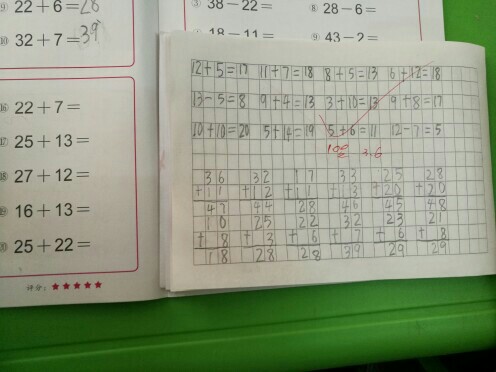 ⑨ 22+6=28
⑩ 32+7=39
⑯ 22+7=
⑰ 25+13=
⑱ 27+12=
⑲ 16+13=
⑳ 25+22=
评分: ★★★★★
③ 38-22=
⑧ 28-6=
18-11=
⑨ 43-2=
12+5=17 11+7=18 8+5=13 6+12=18
13-5=8 9+4=13 3+10=13 9+8=17
10+10=20 5+14=19 5+6=11 12-7=5
100 3.6
36 32 17 33 25 28
+11 +12 +11 +13 +20 +20
47 44 28 46 45 48
10 25 22 32 23 21
+8 +3 +6 +7 +6 +8
18 28 28 39 29 29